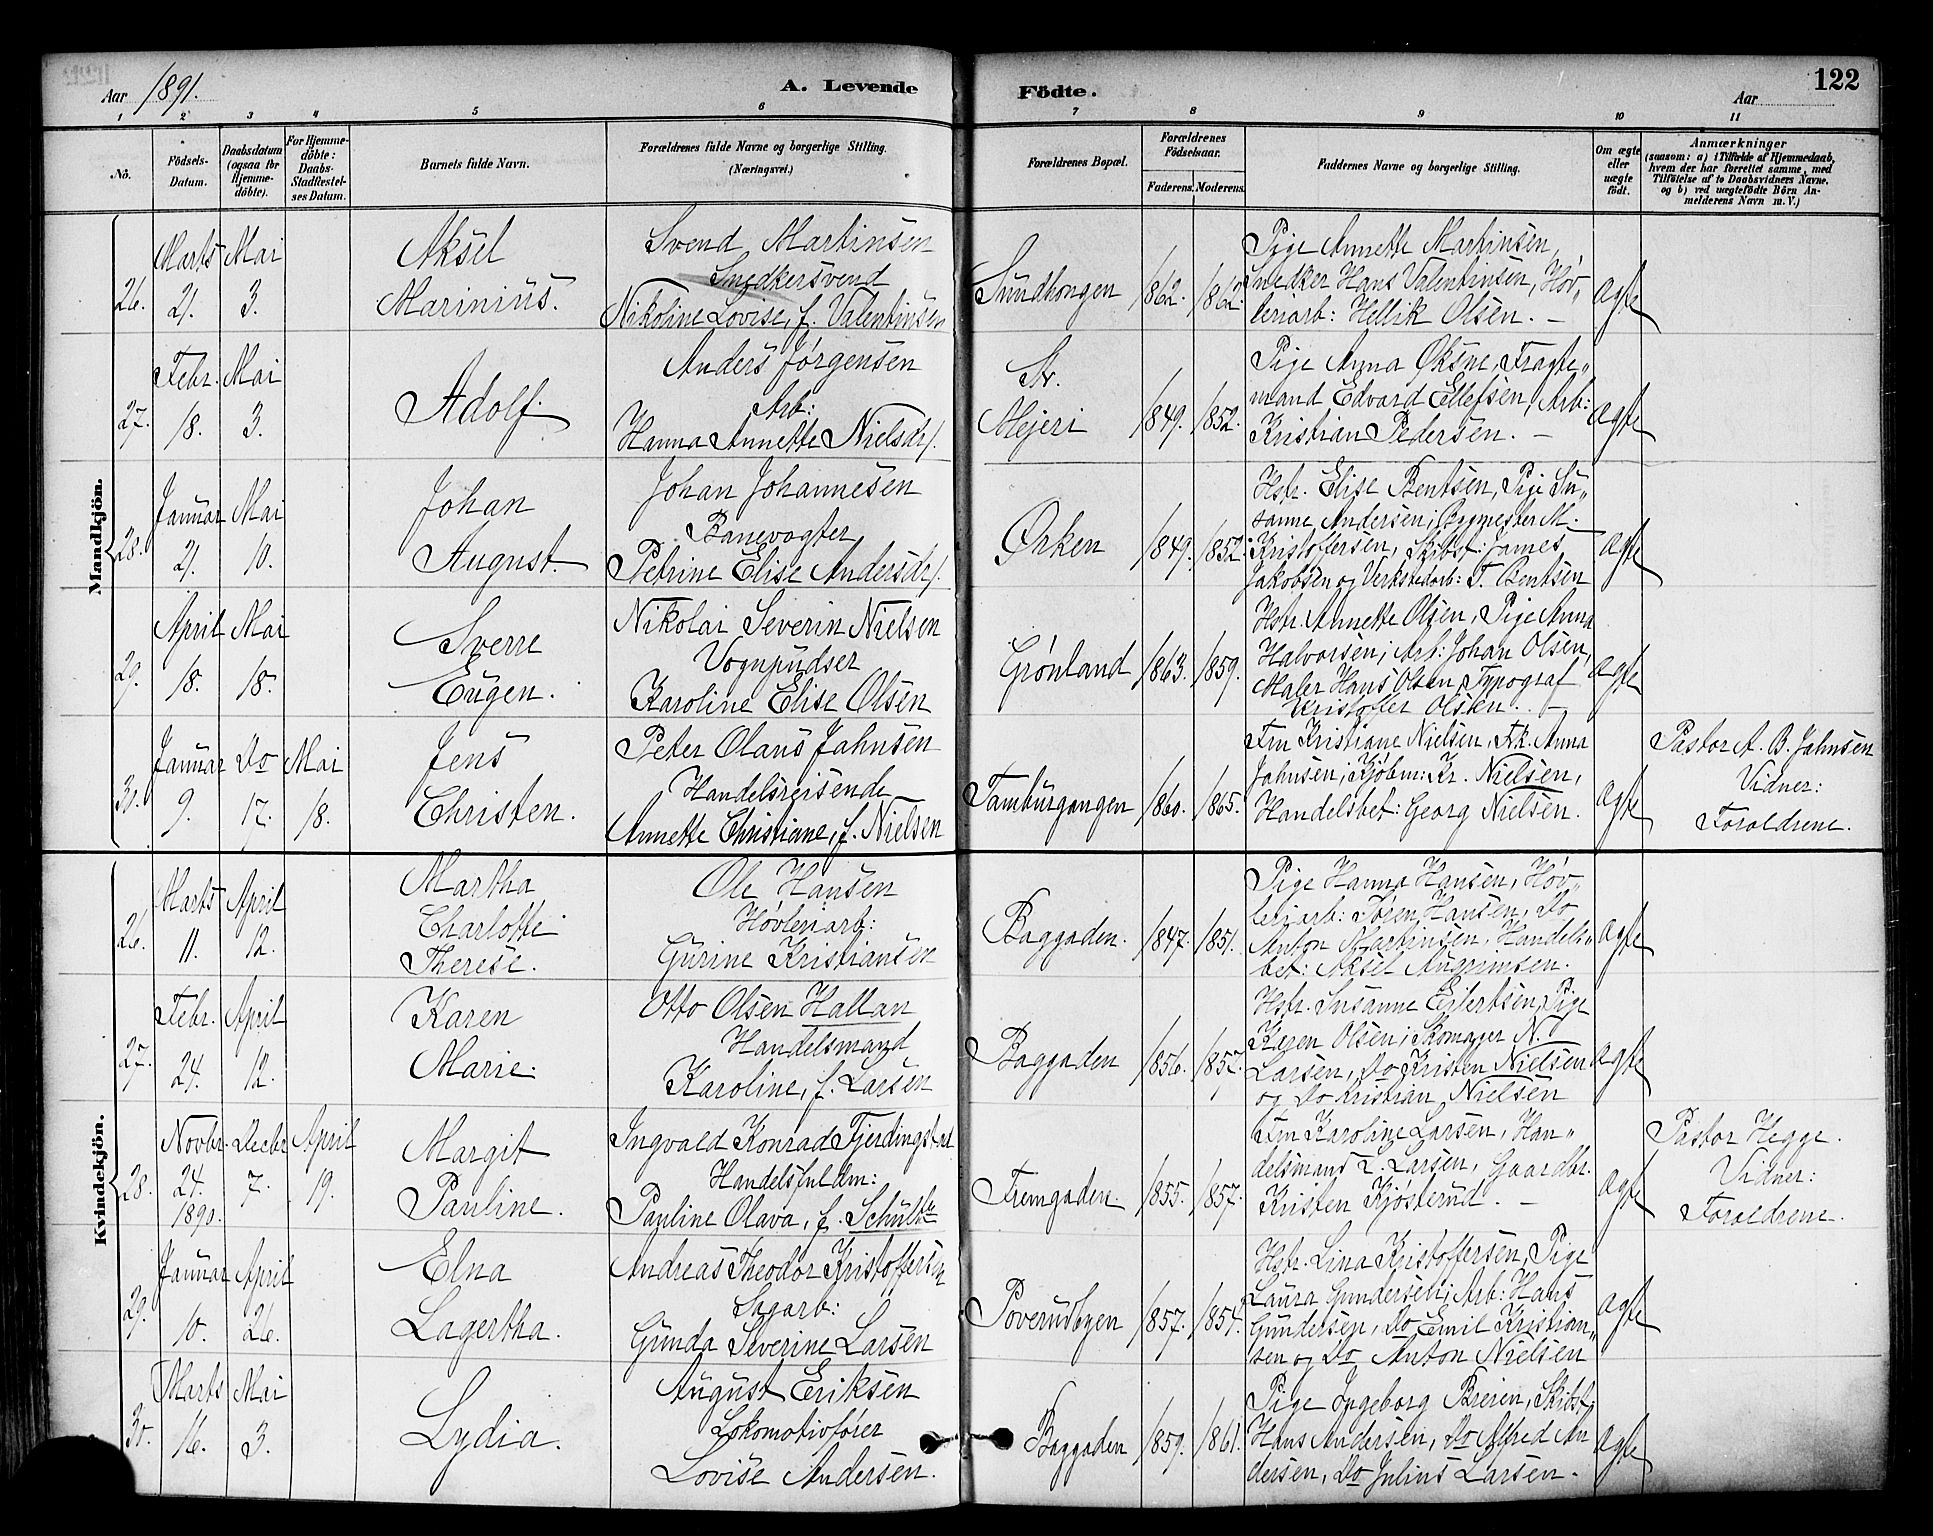 Aar 1891.
A. Levende
Födte.
Aar
122
1
2
3
4
5
6
7
8
9
10
11
No.
Födsels-
Datum.
Daabsdatum
(ogsaa for
Hjemme-
döbte).
For Hjemme-
döbte:
Daabs-
Stadfæstel-
ses Datum.
Barnets fulde Navn.
Forældrenes fulde Navne og borgerlige Stilling.
(Næringsvei.)
Forældrenes Bopæl.
Forældrenes
Födselsaar.
Faderens.
Moderens.
Faddernes Navne og borgerlige Stilling.
Om ægte
eller
uægte
født.
Anmærkninger
(saasom: a) i Tilfælde af Hjemmedaab,
hvem der har forrettet samme, med
Tilföielse af to Daabsvidners Navne,
og b) ved uægtefödte Börn An-
melderens Navn m. V.)
Mandkjön.
26.
Marts
21.
Mai
3.
Aksel
Marinius.
Svend Martinsen
Snedkersvend
Nikoline Lovise, f. Valentinsen
Sundhongen
1862.
1862.
Pige Annette Martinsen,
Snedker Hans Valentinsen, Höv„
leriarb: Hellik Olsen. –
ægte
27.
Febr.
18.
Mai
3.
Adolf.
Anders Jörgensen
Arb:
Hanna Annette Nielsdr.
Str.
Mejeri
1849.
1852.
Pige Anna Øksne, Fragte„
mand Edvard Ellefsen, Arb:
Kristian Pedersen. –
ægte
28.
Januar
21.
Mai
10.
Johan
August.
Johan Johannesen
Banevogter
Petrine Elise Andersdr.
Ørken
1849.
1852.
Hstr. Elise Bentsen, Pige Su„
sanne Andersen; Bygmester M.
Kristoffersen, Skibst: James
Jakobsen og Verkstedarb: T. Bentsen
ægte
29.
April
18.
Mai
18.
Sverre
Eugen.
Nikolai Severin Nielsen
Vognpudser
Karoline Elise Olsen
Grønland
1863.
1859.
Hstr. Annette Olsen, Pige Anna
Halvorsen; Arb: Johan Olsen,
Maler Hans Olsen, Typograf
Kristoffer Olsen. –
ægte
30.
Januar
9.
Do
17.
Mai
18.
Jens
Christen.
Peter Olaus Jahnsen
Handelsreisende
Annette Christiane, f. Nielsen
Tamburgangen
1860.
1865.
Fru Kristiane Nielsen, Frk. Anna
Jahnsen; Kjöbm: Kr. Nielsen,
Handelsbet: Georg Nielsen.
ægte
Pastor A. B. Jahnsen
Vidner:
Forældrene.
Kvindekjön.
26.
Marts
11.
April
12.
Martha
Charlotte
Therese.
Ole Hansen
Hövleriarb:
Gurine Kristiansen
Baggaden.
1847.
1851.
Pige Hanna Hansen, Höv„
leriarb: Sören Hansen, Do
Anton Martinsen, Handels„
bet: Aksel
ægte
27.
Febr.
24.
April
12.
Karen
Marie.
Otto Olsen Hallan
Handelsmand
Karoline, f. Larsen
Baggaden
1856.
1857.
Hstr. Susanne Eilertsen, Pige
Karen Olsen; Skomager N.
Larsen, Do Kristen Nielsen
og Do Kristian Nielsen
ægte
28.
Novbr.
24.
1890.
Decbr
7.
April
19.
Margit
Pauline.
Ingvald Konrad Fjerdingstad
Handelsfuldm:
Pauline Olava, f. Schulte
Fremgaden.
1855.
1857.
Fru Karoline Larsen, Han„
delsmand L. Larsen, Gaardbr.
Kristen Kjösterud. –
ægte
Pastor Hegge.
Vidner:
Forældrene.
29.
Januar
10.
April
26.
Elna
Lagertha.
Andreas Theodor Kristoffersen
Sagarb:
Gunda Severine Larsen
Poverudbyen
1857.
1854.
Hstr. Lina Kristoffersen, Pige
Laura Gundersen; Arb: Hans
Gundersen, Do Emil Kristian„
sen og Do Anton Nielsen
ægte
30.
Marts
16.
Mai
3.
Lydia.
August Eriksen
Lokomotivförer
Lovise Andersen.
Baggaden
1859.
1861.
Pige Ingeborg Breien, Skibst.
Hans Andersen, Do Alfred An
dersen, Do Julius Larsen.
ægte